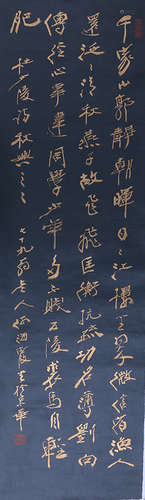 千家山郭靜朝暉日日江樓坐翠微信宿漁人
還泛泛清秋燕子故飛飛匡衡抗疏功名薄劉向
傳經心事違同學少年多不賤五陵裘馬自輕
肥 杜少陵詩秋興之三 七十九